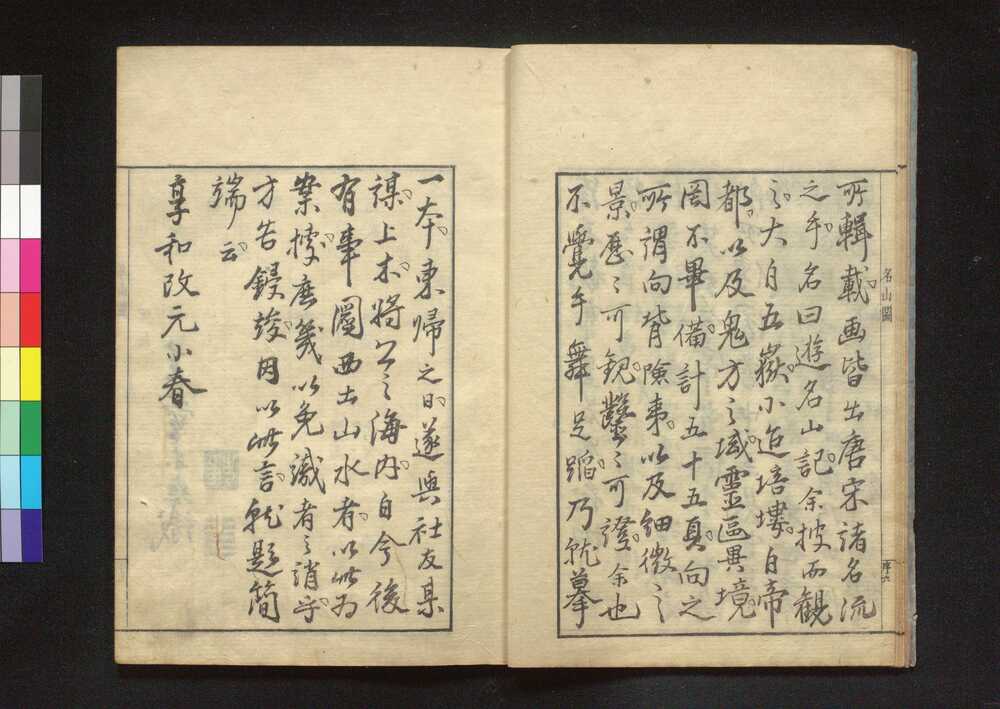 所輯載画皆出唐宋諸名流
之手名曰遊名山記余披而観
之大自五嶽小迨培塿自帝
都以及鬼方之域霊區異境
罔不畢備計五十五頁向之
所謂向背険夷以及細微之
景歴々可観鑿々可證余也
不覺手舞足蹈乃就摹
名山圖
序六
一本東帰之日遂與社友某
謀上木将公之海内自今後
有事圖画山水者以此為
案據庶幾以免識者之誚乎
方告鋟竣因以此言就題簡
端云
享和改元小春